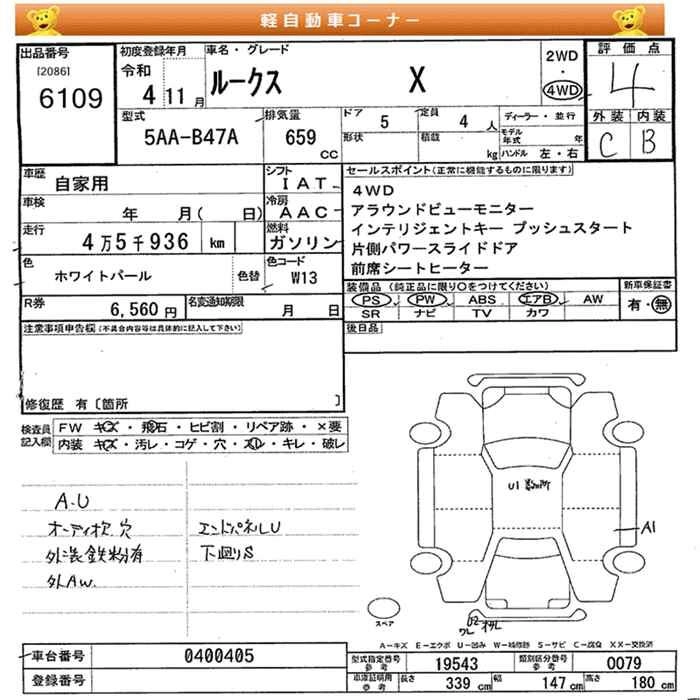 軽自動車コーナー
出品番号
[2086]
6109
初度登録年月
令和
4 11月
車名・グレード
ルークス X
2WD
・
4WD
評価点
4
外装 内装
C B
型式
5AA-B47A
排気量
659
cc
ドア
5
定員
4 人
形状
積載
kg
ディーラー・並行
モデル年式 年
ハンドル 左・右
車歴
自家用
シフト
IAT
車検
年 月( 日)
冷房
AAC
走行
4万5千936 km
燃料
ガソリン
色
ホワイトパール
色替
色コード
W13
R券
6,560円
名変通知期限
月 日
セールスポイント(正常に機能するものに限ります)
4WD
アラウンドビューモニター
インテリジェントキー プッシュスタート
片側パワースライドドア
前席シートヒーター
装備品(純正品に限り○をつけてください)
PS PW ABS エアB AW
SR ナビ TV カワ
新車保証書
有・無
後日品
注意事項申告欄(不具合内容等は具体的に記入して下さい)
修復歴 有〔箇所 〕
検査員記入欄
FW キズ・飛石・ヒビ割・リペア跡・×要
内装 キズ・汚レ・コゲ・穴・スレ・キレ・破レ
A-U
オーディオ位穴
外装鉄粉有
外AW.
エンドパネルU
下廻りS
U1 数ヶ所
A1
スペア
A－キズ E－エクボ U－凹み W－補修跡 S－サビ C－腐食 XX－交換済
車台番号
0400405
登録番号
型式指定番号
参考
19543
類別区分番号
参考
0079
車庫証明記載
参考
長さ 339 cm 幅 147 cm 高さ 180 cm